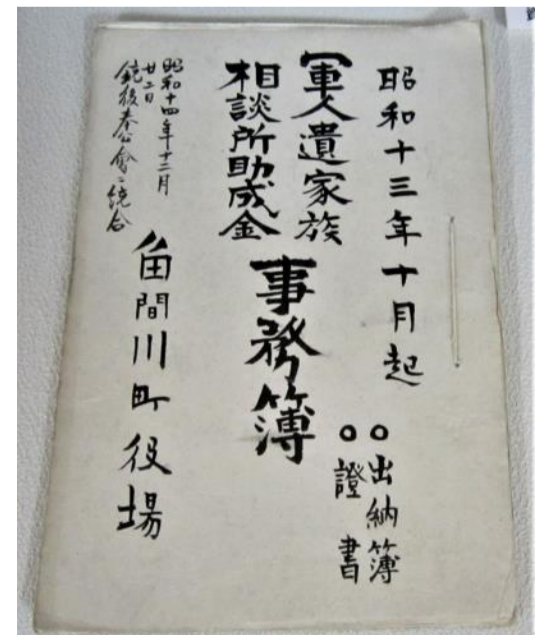 昭和十三年十月起
○出納簿
○證書
軍人遺家族
相談所助成金
事務簿
昭和十四年十二月
廿二日
銃後奉公會ニ統合
角間川町役場